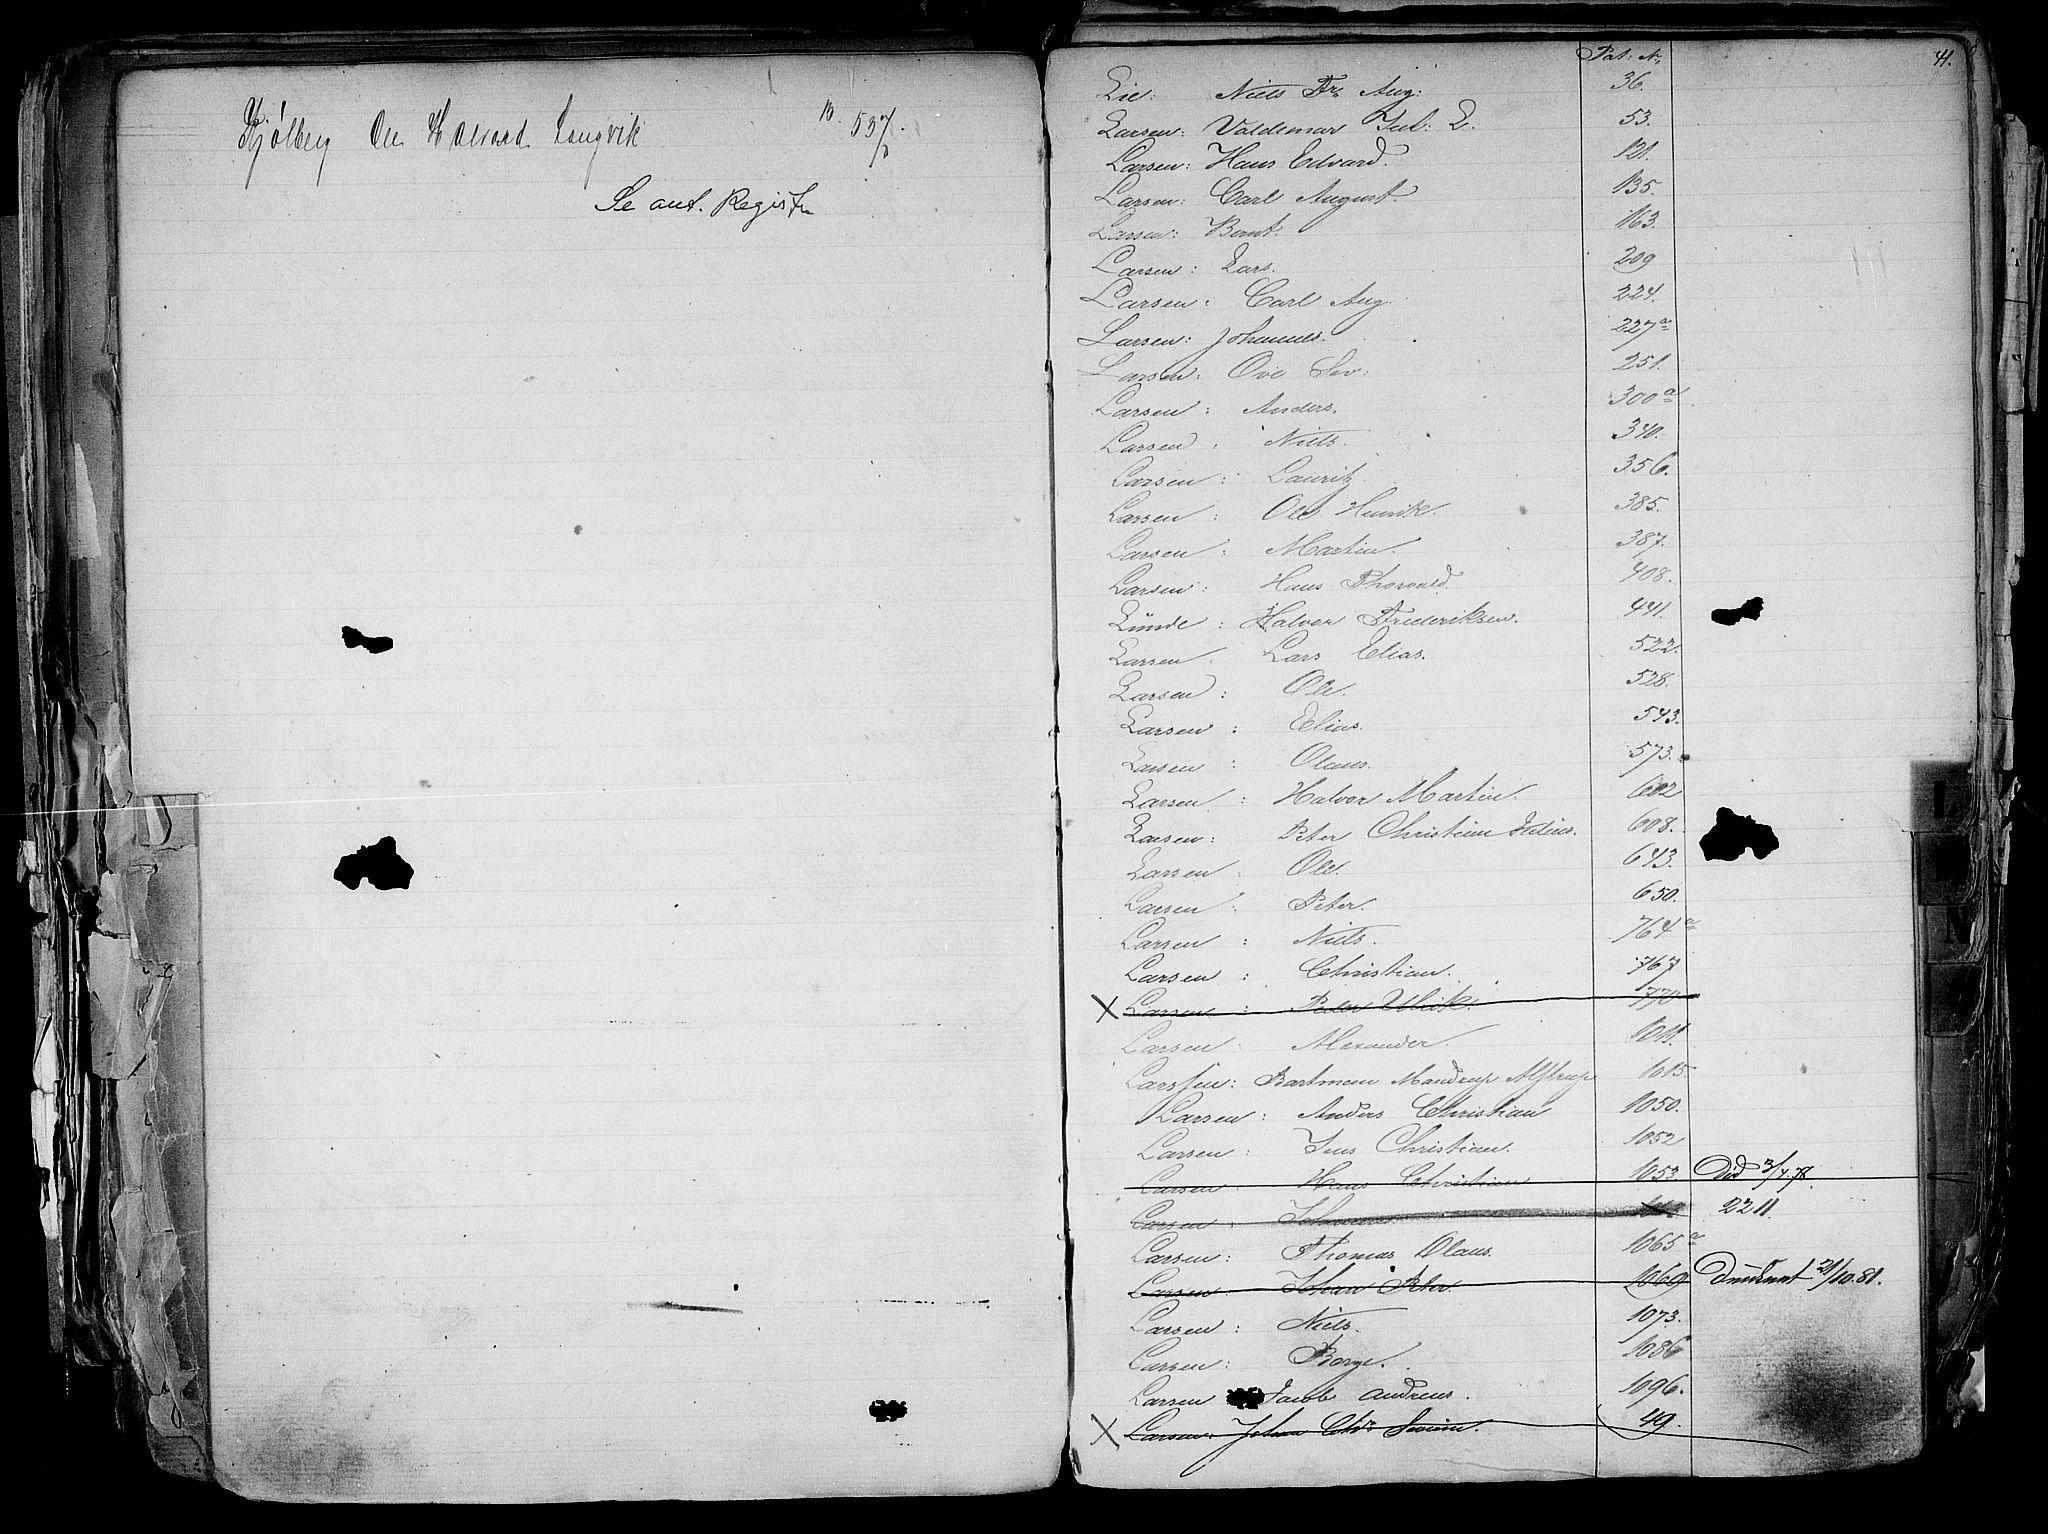 Kjølberg Ole Halvard Langvik B. 537.
Se ant. Register
41.
Pat: Nr
Lie: Niels Fr. Aug: 36.
Larsen: Valdemar Jul: L. 53.
Larsen: Hans Edvard. 121.
Larsen: Carl August. 135.
Larsen: Bernt. 163.
Larsen: Lars. 209
Larsen: Carl Aug. 224.
Larsen: Johannes. 227a
Larsen: Ove Sev: 251.
Larsen: Anders. 300a
Larsen: Niels. 340.
Larsen: Lauritz. 356.
Larsen: Ole Henrik. 385.
Larsen: Martin. 387.
Larsen: Hans Thorvald. 408.
Lünde: Halvor Frederiksen. 441.
Larsen. Lars Elias. 522.
Larsen: Ole. 528.
Larsen: Elias. 543.
Larsen: Olaus. 573.
Larsen: Halvor Martin. 602
Larsen: Peter Christian Julius. 608.
Larsen: Ole. 643.
Larsen: Peter. 650.
Larsen: Niels. 764a
Larsen: Christian. 767
X Larsen: Peder Ulrik. 770
Larsen: Alexander. 1011.
Larssen: Bartmann Mandrup Alstrup 1015.
Larsen: Anders Christian 1050.
Larsen: Jens Christian. 1052
Larsen: Hans Christian 1053. Død 3/4.78.
Larsen: 2211.
Larsen: Thomas Olaus. 1065a
Larsen: Johan Peter. 1069 Druknet 21/10.81.
Larsen: Niels. 1073.
Larsen: Borge. 1086
Larsen Jacob Andreas. 1096.
X Larsen: Johan Chr. Severin. 49.
L
N